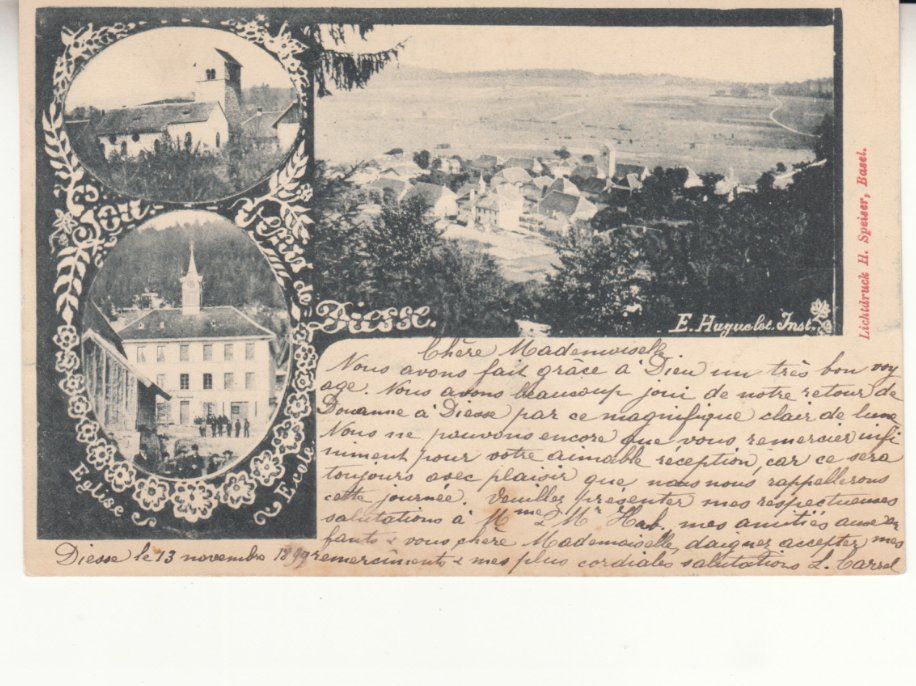 Souvenir de
Diesse.
Eglise
Ecole
E. Huguelet. Inst.
Lichtdruck H. Speiser, Basel.
Chère Mademoiselle
Nous avons fait grâce à Dieu un très bon voy
age. Nous avons beaucoup joui de notre retour de
Douanne à Diesse par ce magnifique clair de lune
Nous ne pouvons encore que vous remercier infi
niment pour votre aimable réception, car ce sera
toujours avec plaisir que nous nous rappellerons
cette journée. Veuillez présenter mes respectueuses
salutations à Mme & Mr mes amitiés aux en
fants & vous chère Mademoiselle, daignez accepter mes
remerciments & mes plus cordiales salutations L. Carrel
Diesse le 13 novembre 1899